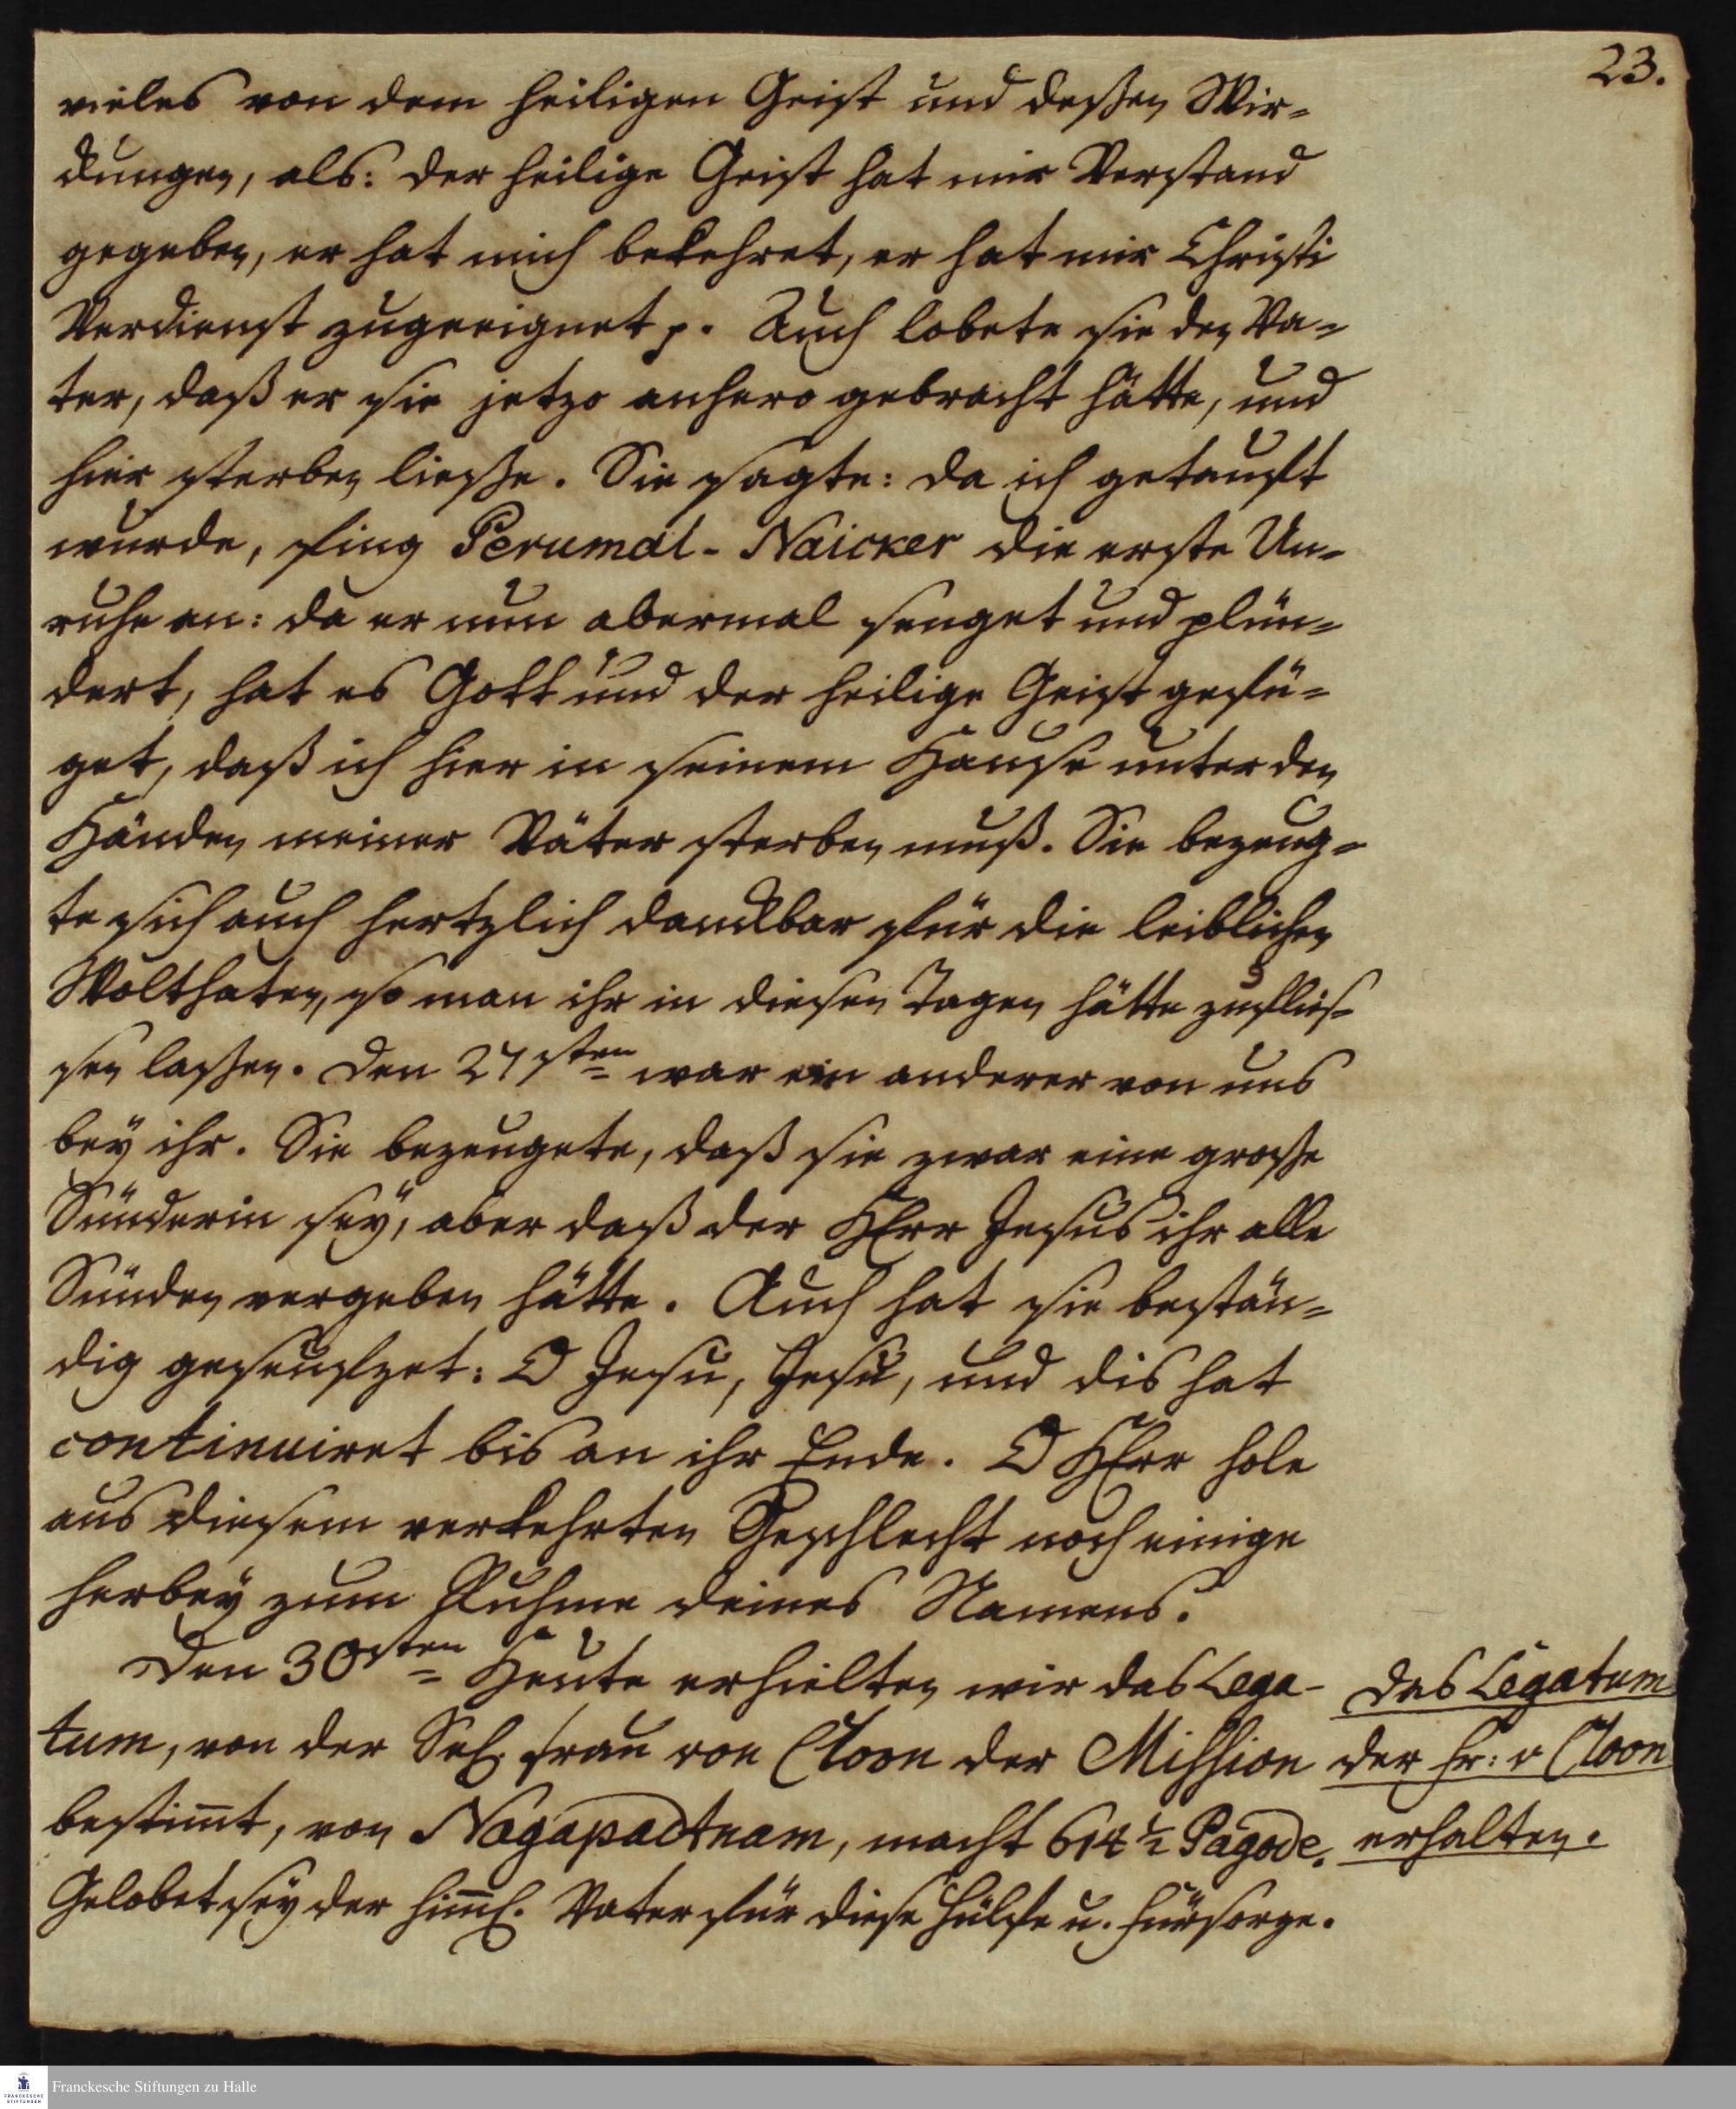 23.
vieles von dem heiligen Geist und deßen Wir-
ckungen, als: der heilige Geist hat mir Verstand
gegeben, er hat mich bekehret, er hat mir Christi
Verdienst zugeeignet p. Auch lobete sie den Va-
ter, daß er sie jetzo anhero gebracht hätte, und
hier sterben liesse. Sie sagte: da ich getauft
wurde, fing Perumal-Naicker die erste Un-
ruhe an: da er nun abermal senget und plün-
dert, hat es Gott und der heilige Geist gefü-
get, daß ich hier in seinem Hause unter den
Händen meiner Väter sterben muß. Sie bezeug-
te sich auch hertzlich danckbar für die leiblichen
Wolthaten, so man ihr in diesen Tagen hätte zufließ-
sen lassen. Den 27sten war ein anderer von uns
bey ihr. Sie bezeugete, daß sie zwar eine grosse
Sünderin sey, aber daß der HErr Jesus ihr alle
Sünden vergeben hätte. Auch hat sie bestän-
dig geseufzet: O Jesu, Jesu, und dis hat
continuiret bis an ihr Ende. O HErr hole
aus diesem verkehrten Geschlecht noch einige
herbey zum Ruhme deines Namens.
Den 30sten Heute erhielten wir das Lega-
tum, von der Sel. Frau von Cloon der Mission
bestim̄t, von Nagapadtnam, macht 614 1/2 Pagode.
Gelobet sey der him̄l. Vater für diese Hülfe u. Fürsorge.
das Legatum
der Fr: v Cloon
erhalten.
Franckesche Stiftungen zu Halle
FRANCKESCHE
STIFTUNGEN